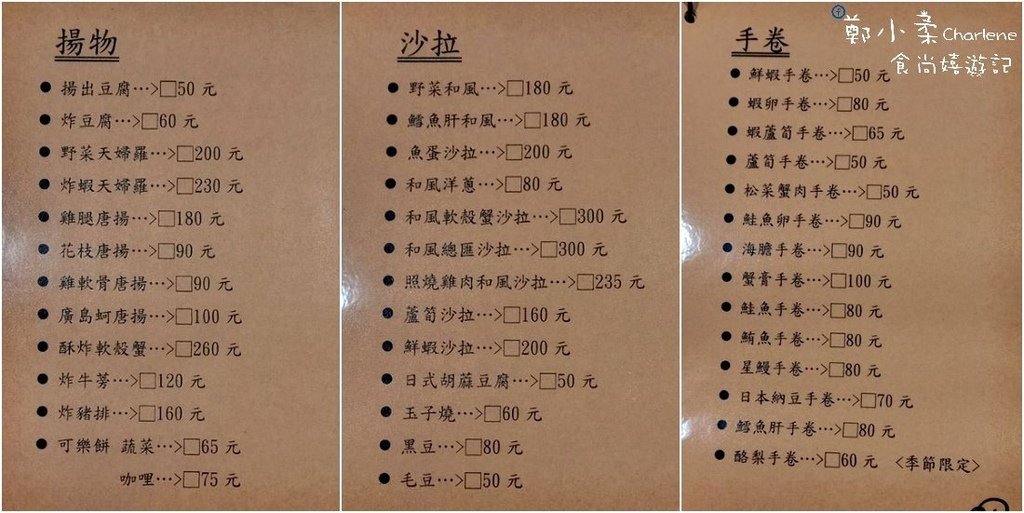 揚物
● 揚出豆腐…>□50 元
● 炸豆腐…>□60 元
● 野菜天婦羅…>□200 元
● 炸蝦天婦羅…>□230 元
● 雞腿唐揚…>□180 元
● 花枝唐揚…>□90 元
● 雞軟骨唐揚…>□90 元
● 廣島蚵唐揚…>□100 元
● 酥炸軟殼蟹…>□260 元
● 炸牛蒡…>□120 元
● 炸豬排…>□160 元
● 可樂餅 蔬菜…>□65 元
咖哩…>□75 元
沙拉
● 野菜和風…>□180 元
● 鱈魚肝和風…>□180 元
● 魚蛋沙拉…>□200 元
● 和風洋蔥…>□80 元
● 和風軟殼蟹沙拉…>□300 元
● 和風總匯沙拉…>□300 元
● 照燒雞肉和風沙拉…>□235 元
● 蘆筍沙拉…>□160 元
● 鮮蝦沙拉…>□200 元
● 日式胡蔴豆腐…>□50 元
● 玉子燒…>□60 元
● 黑豆…>□80 元
● 毛豆…>□50 元
手卷
● 鮮蝦手卷…>□50 元
● 蝦卵手卷…>□80 元
● 蝦蘆筍手卷…>□65 元
● 蘆筍手卷…>□50 元
● 松菜蟹肉手卷…>□50 元
● 鮭魚卵手卷…>□90 元
● 海膽手卷…>□90 元
● 蟹膏手卷…>□100 元
● 鮭魚手卷…>□80 元
● 鮪魚手卷…>□80 元
● 星鰻手卷…>□80 元
● 日本納豆手卷…>□70 元
● 鱈魚肝手卷…>□80 元
● 酪梨手卷…>□60 元 〈季節限定〉
鄭小柔Charlene
食尚嬉遊記